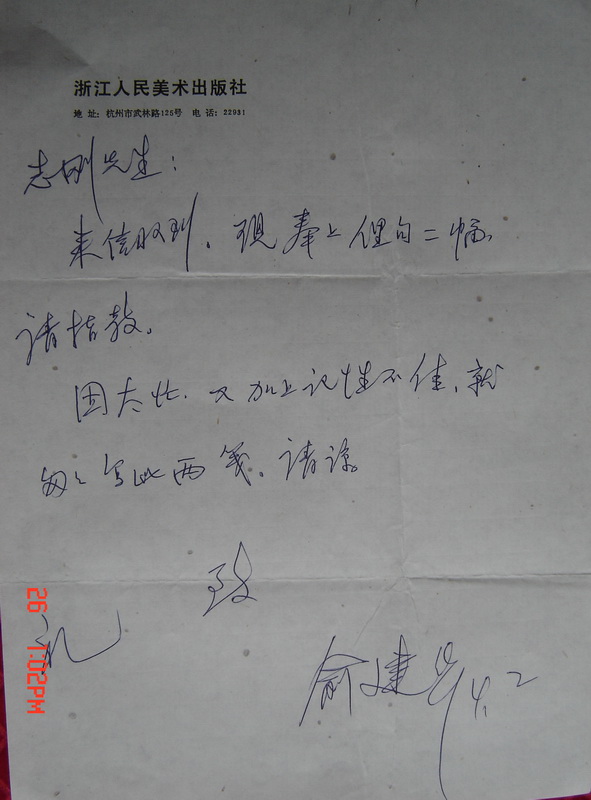 浙江人民美术出版社
地 址：杭州市武林路125号 电 话：22981
志刚先生：
来信收到，现奉上俚句二幅，
请指教。
因太忙，又加上记性不佳，就
匆匆写此两笺，请谅。
致
礼
俞建华 4.2
26 1:02PM